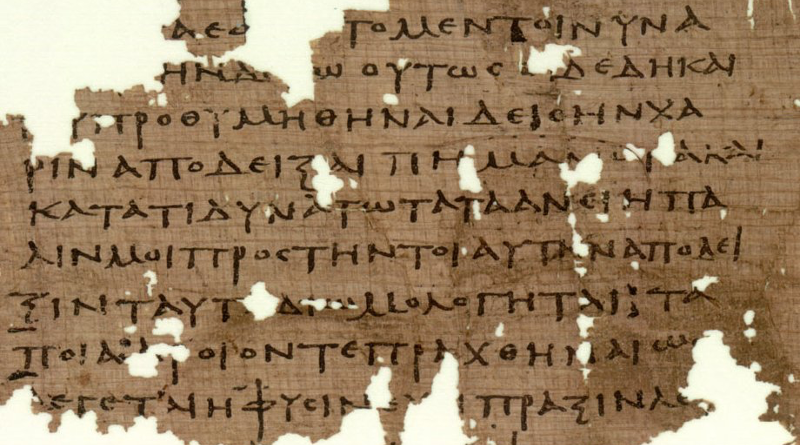 ΛΕΟ ΤΟΜΕΝΤΟΙΝΥΝΑ
ΗΝΔ Ω ΟΥΤΩϹ ΔΕΔΗΚΑΙ
Υ ΠΡΟΘΥΜΗΘΗΝΑΙΔΕΙϹΗΝΧΑ
ΡΙΝΑΠΟΔΕΙΞΑΙ ΠΗΜΑΛ ΚΑΙ
ΚΑΤΑΤΙΔΥΝΑΤΩΤΑΤΑΑΝΕΙΗΠΑ
ΛΙΝΜΟΙΠΡΟϹΤΗΝΤΟΙΑΥΤΗΝΑΠΟΔΕΙ
ΞΙΝΤΑΥΤ ΔΙΟΜΟΛΟΓΗΤΑΙ: ΤΑ
ΠΟΙΑ:ΑΡ ΟΙΟΝΤΕΠΡΑΧΘΗΝΑΙΩϹ
ΛΕΓΕΤΑΙΗΦΥϹΙΝ Ε Ι ΠΡΑΞΙΝΛΕ